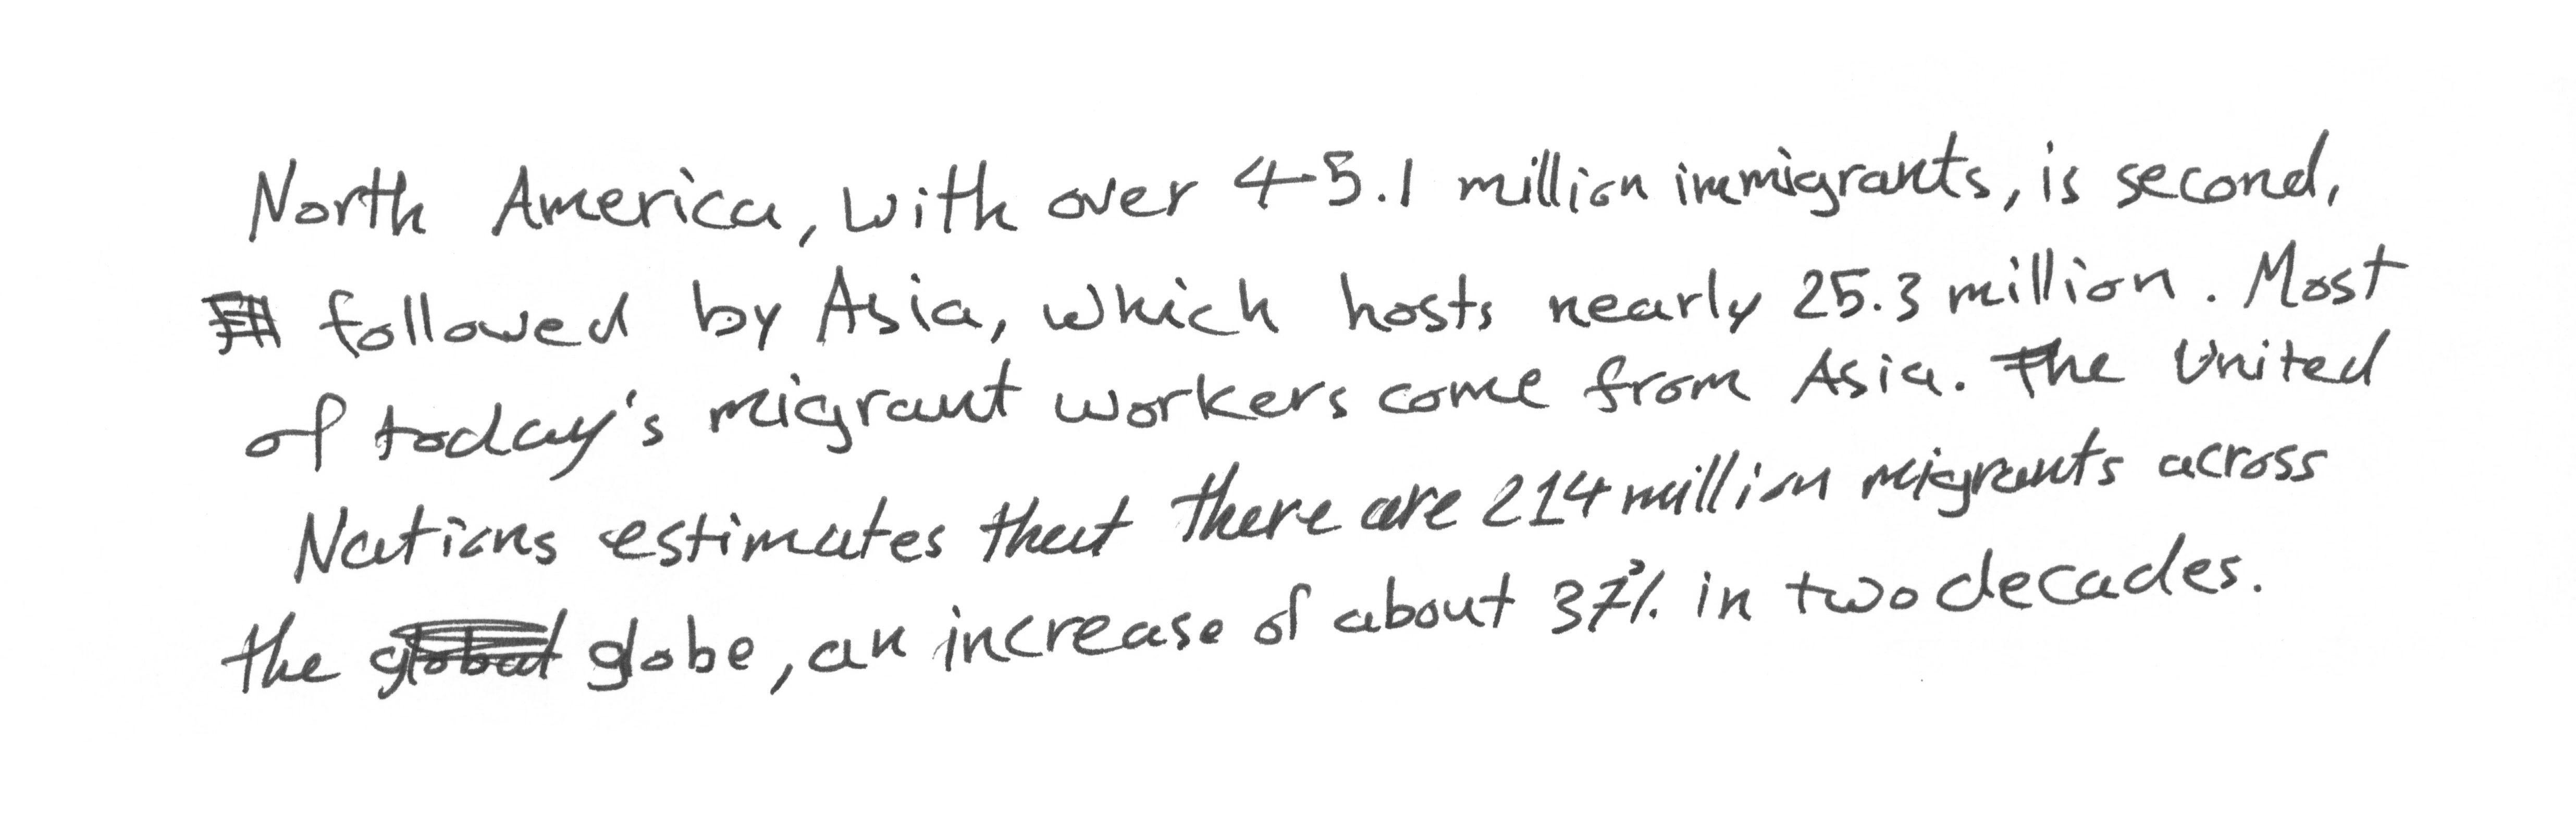 North America, with over 45.1 million immigrants, is second,
followed by Asia, which hosts nearly 25.3 million. Most
of today's migrant workers come from Asia. The United
Nations estimates that there are 214 million migrants across
the globe, an increase of about 37% in two decades.